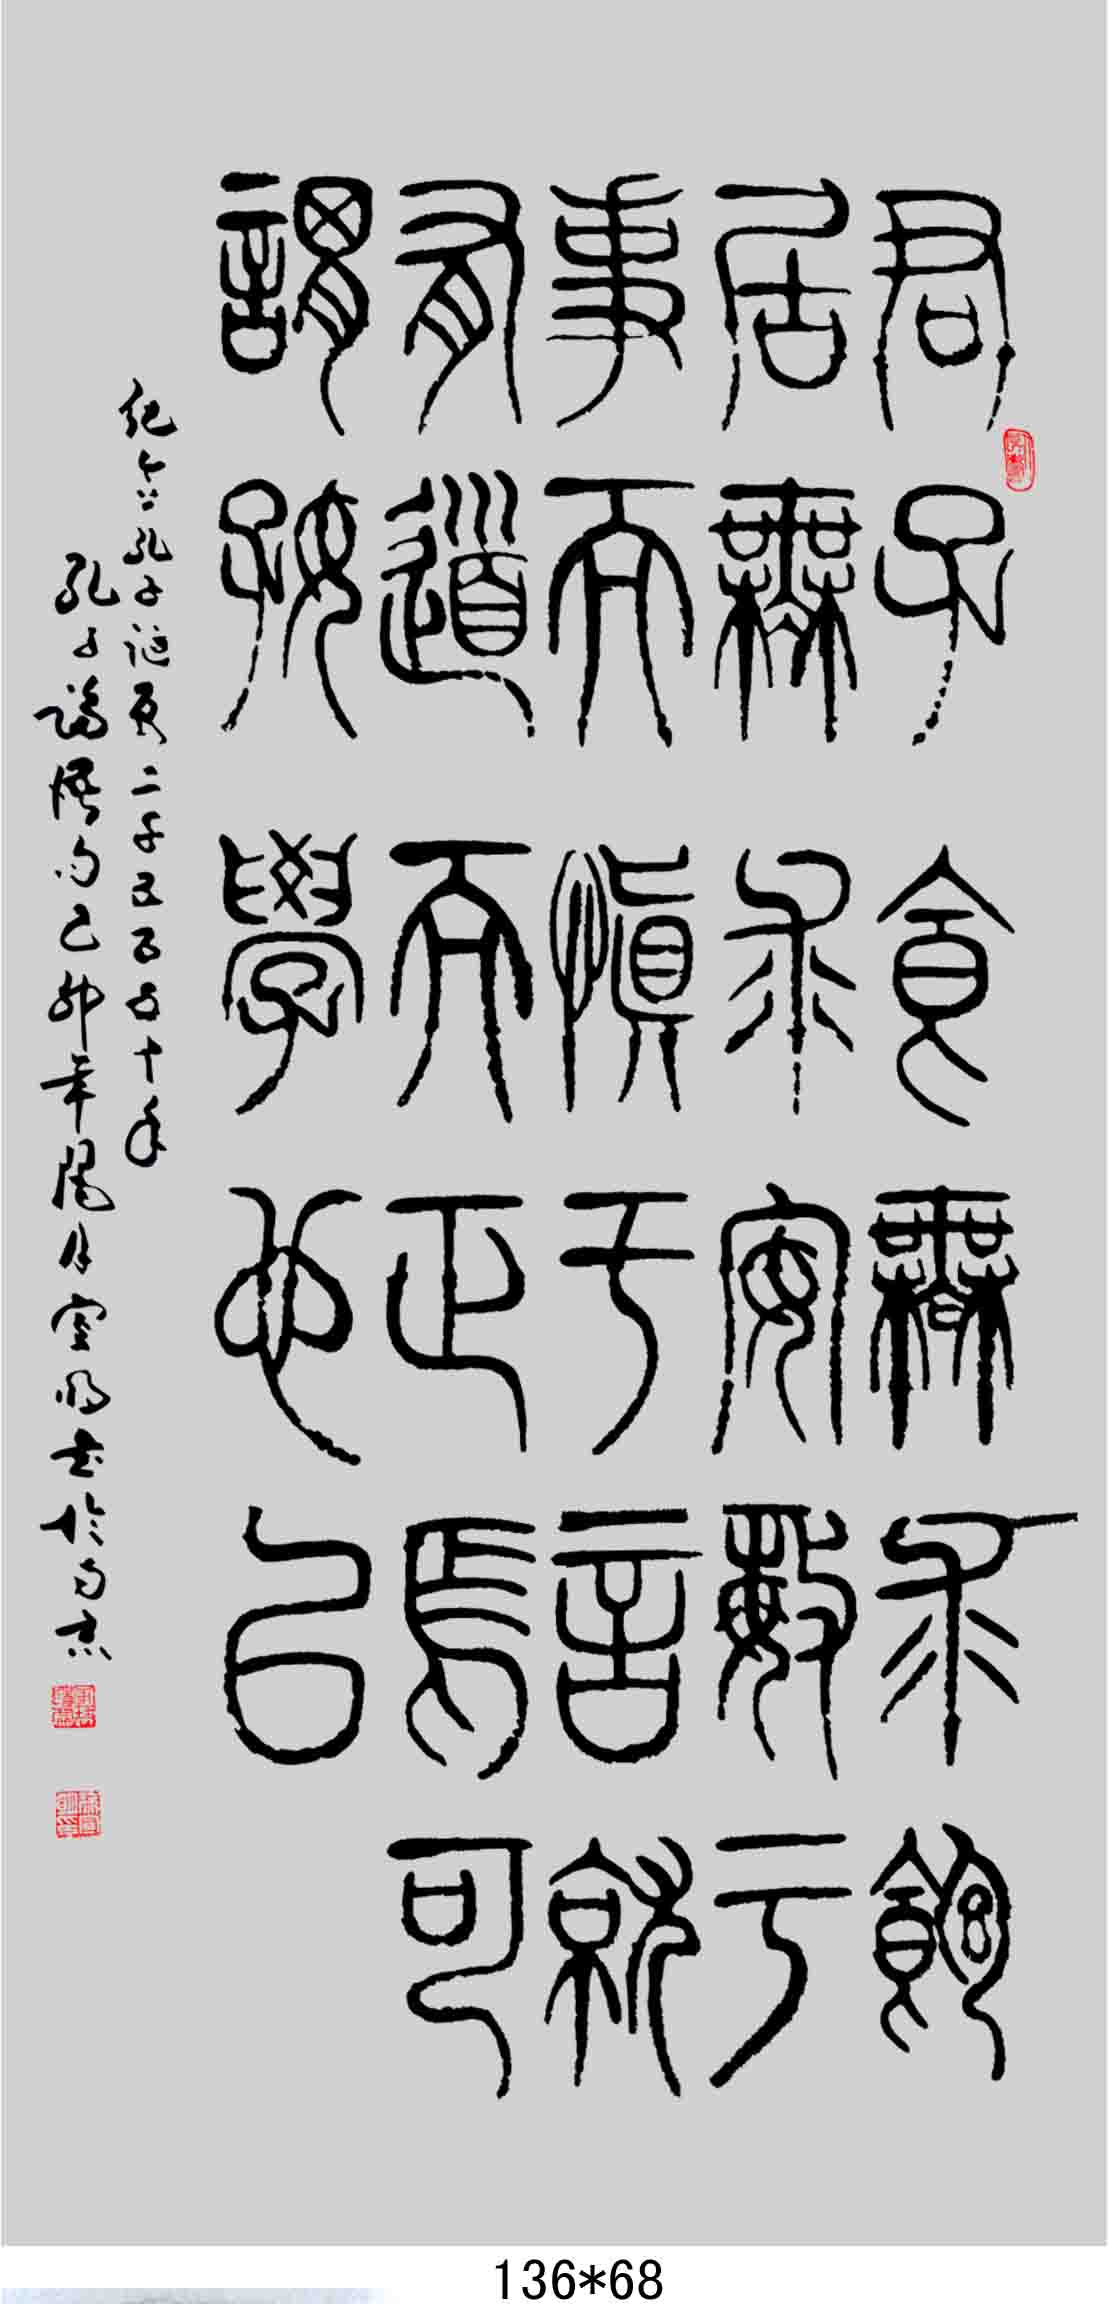 君子食無求飽
居無求安敏于
事而慎于言就
有道而正焉可
謂好學也已
紀念孔子誕辰二千五百五十年
孔子論語句己卯年陽月明書於南京
136*68